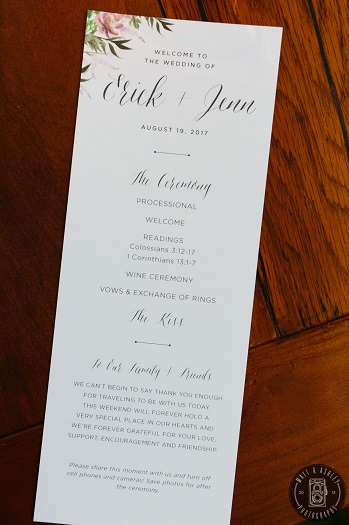 WELCOME TO
THE WEDDING OF
Erick + Jenn
AUGUST 19, 2017
The Ceremony
PROCESSIONAL
WELCOME
READINGS
Colossians 3:12-17
1 Corinthians 13:1-7
WINE CEREMONY
VOWS & EXCHANGE OF RINGS
The Kiss
To Our Family & Friends
WE CAN'T BEGIN TO SAY THANK YOU ENOUGH
FOR TRAVELING TO BE WITH US TODAY
THIS WEEKEND WILL FOREVER HOLD A
VERY SPECIAL PLACE IN OUR HEARTS AND
WE'RE FOREVER GRATEFUL FOR YOUR LOVE,
SUPPORT, ENCOURAGEMENT AND FRIENDSHIP.
Please share this moment with us and turn off
cell phones and cameras! Save photos for after
the ceremony.
MATT & ASHLEY
PHOTOGRAPHY